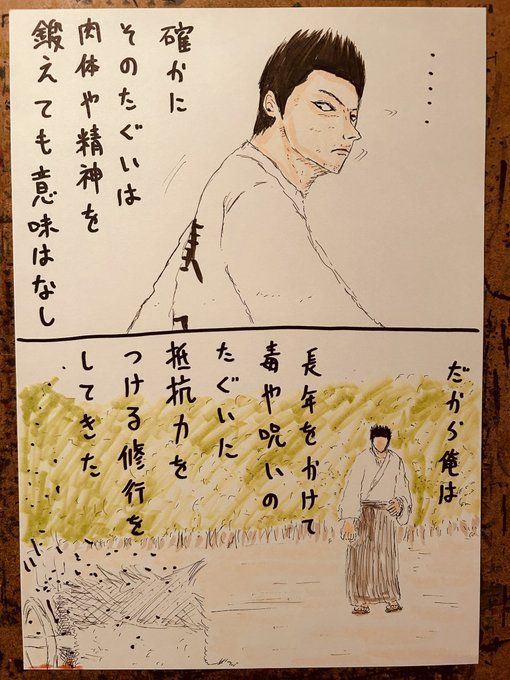 ・・・・・
確かに
そのたぐいは
肉体や精神を
鍛えても意味はなし
だから俺は
長年をかけて
毒や呪いの
たぐいた
抵抗力を
つける修行を
してきた